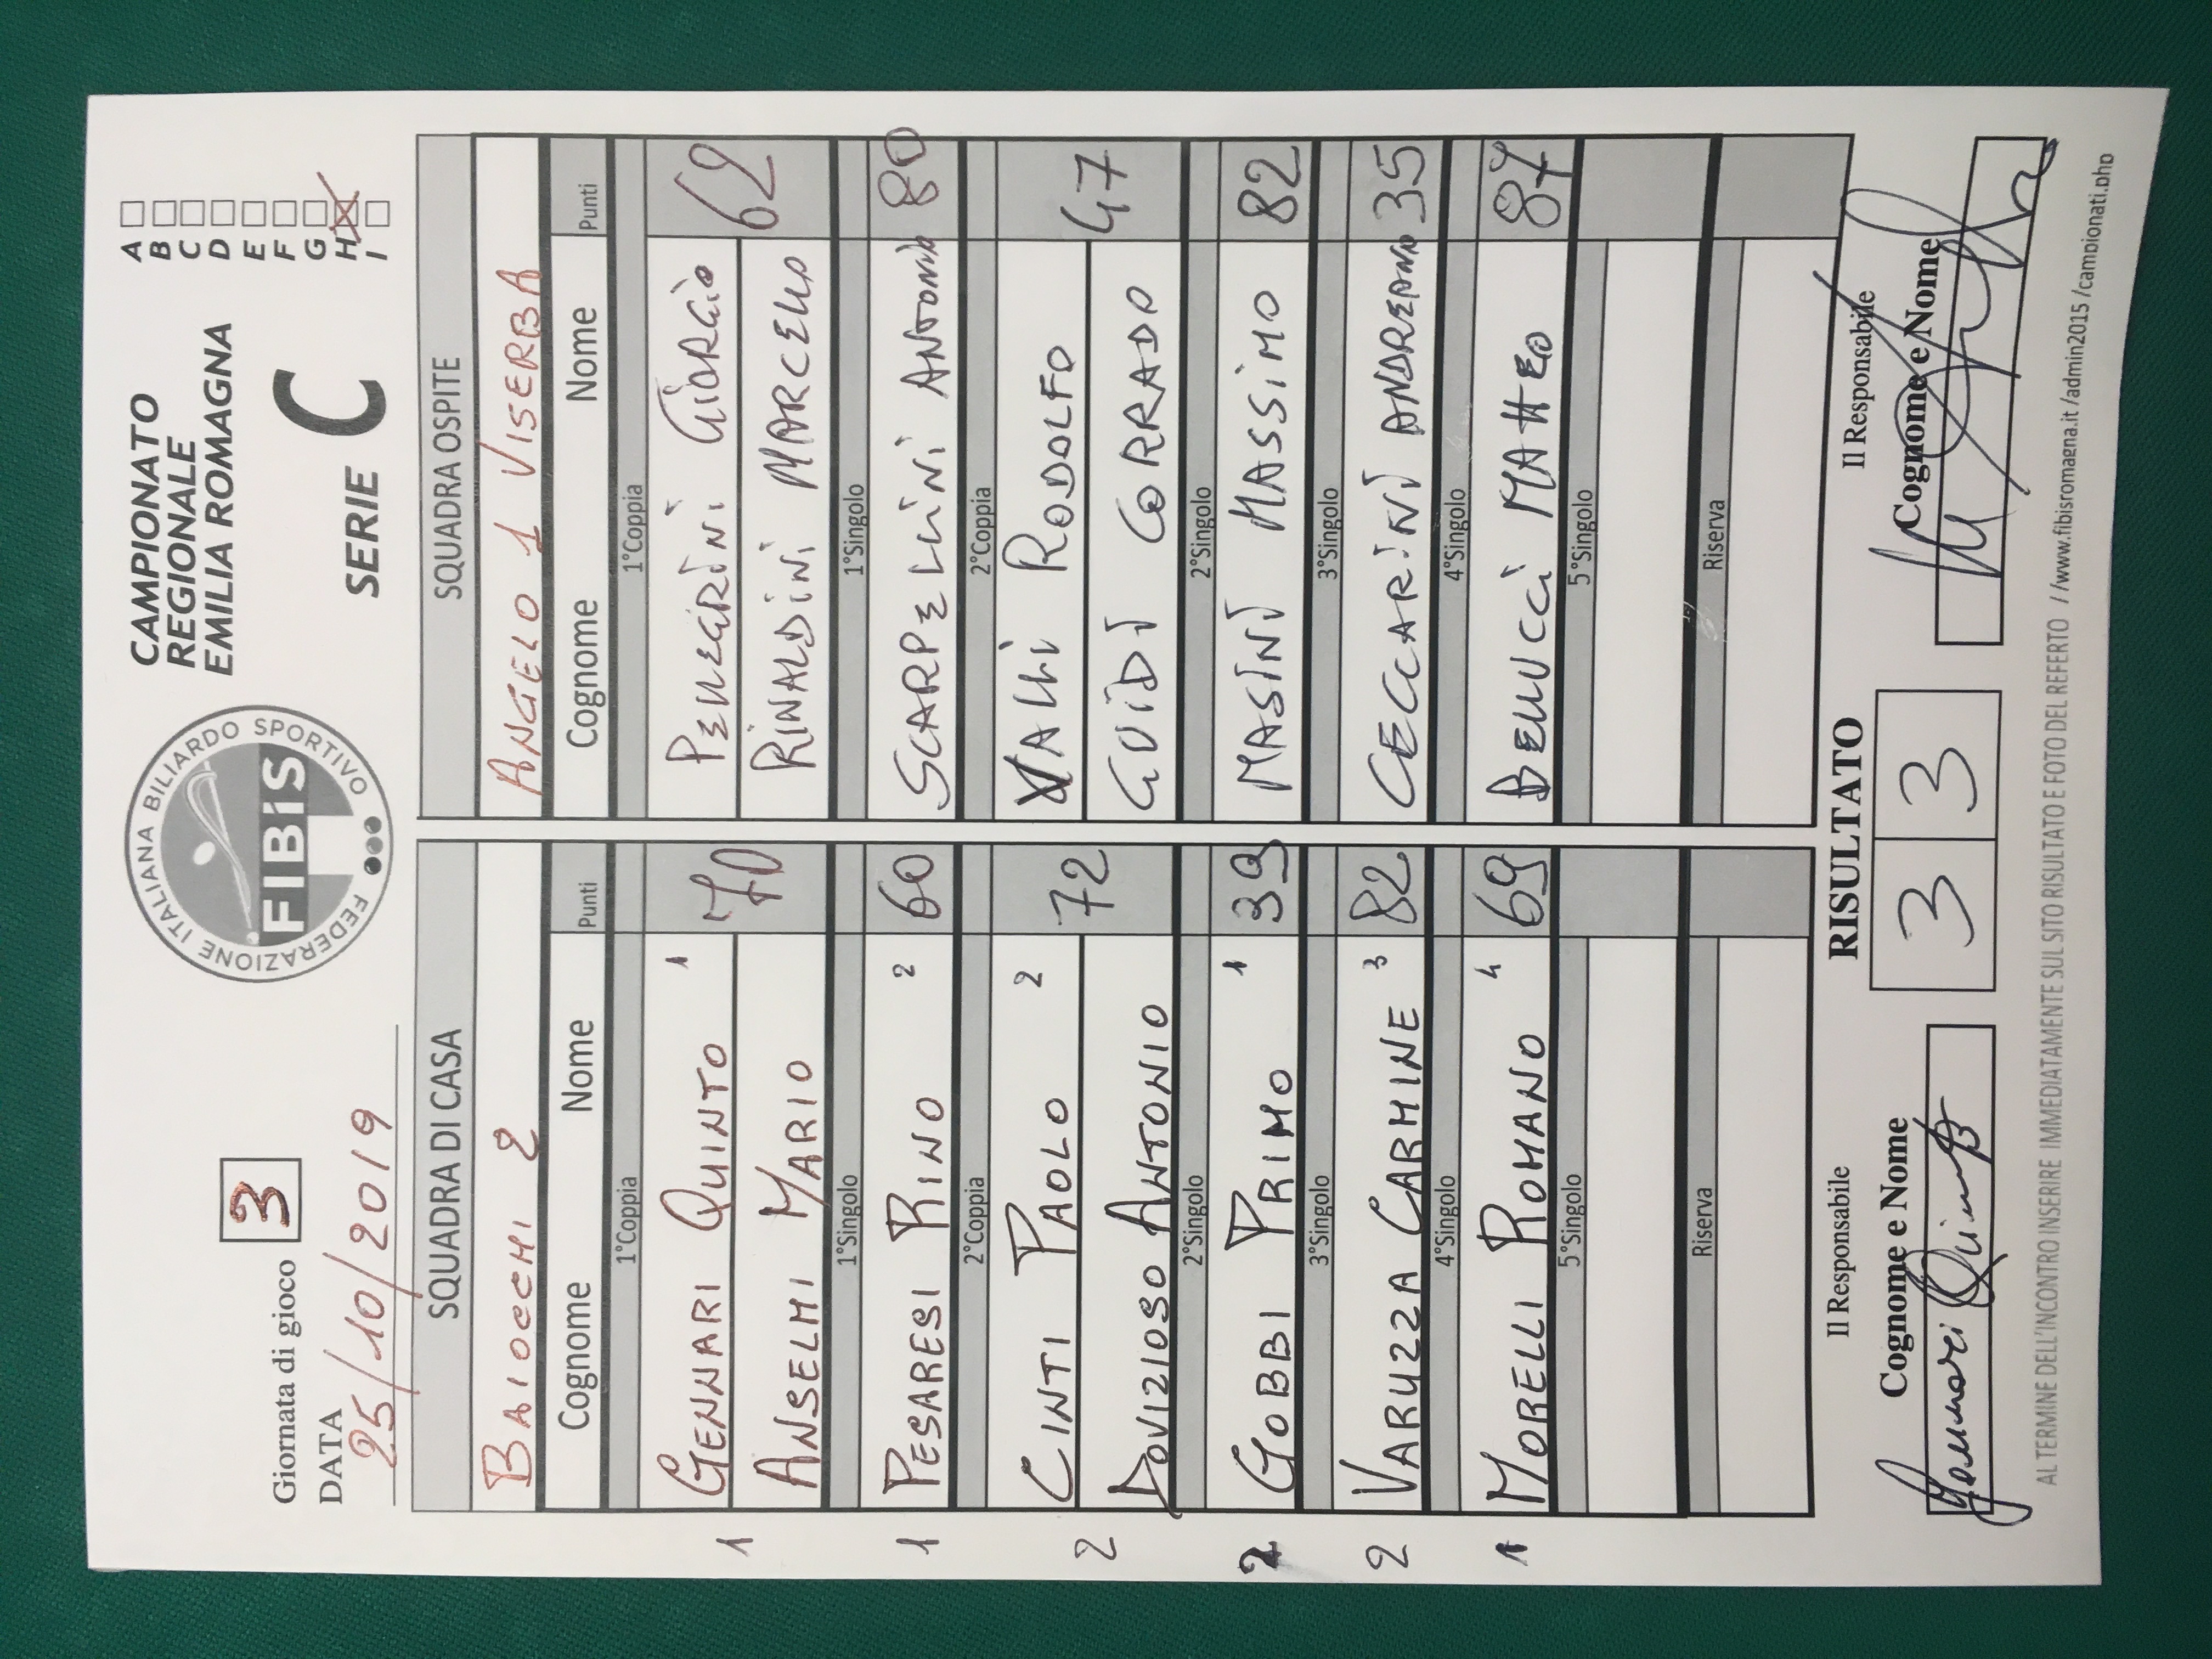 Giornata di gioco 3
DATA 25/10/2019
FEDERAZIONE ITALIANA BILIARDO SPORTIVO
FIBiS
CAMPIONATO
REGIONALE
EMILIA ROMAGNA
SERIE C
A
B
C
D
E
F
G
H
I
SQUADRA DI CASA
BAIOCCHI 2
Cognome Nome Punti
1°Coppia
1 GENNARI QUINTO 1 70
ANSELMI MARIO
1°Singolo
1 PESARESI RINO 2 60
2°Coppia
2 CINTI PAOLO 2 72
DOVIZIOSO ANTONIO
2°Singolo
GOBBI PRIMO 1 39
3°Singolo
2 VARUZZA CARMINE 3 82
4°Singolo
1 MORELLI ROMANO 4 69
5°Singolo
Riserva
SQUADRA OSPITE
ANGELO 1 VISERBA
Cognome Nome Punti
1°Coppia
PELLEGRINI GIORGIO 62
RINALDINI MARCELLO
1°Singolo
SCARPELLINI ANTONIO 80
2°Coppia
VALLI RODOLFO 47
GUIDI CORRADO
2°Singolo
MASINI MASSIMO 82
3°Singolo
CECCARINI ANDREANO 35
4°Singolo
BELLUCCI MATTEO 87
5°Singolo
Riserva
Il Responsabile
Cognome e Nome
Gennari Quinto
RISULTATO
3 3
Il Responsabile
Cognome e Nome
AL TERMINE DELL'INCONTRO INSERIRE IMMEDIATAMENTE SUL SITO RISULTATO E FOTO DEL REFERTO //www.fibisromagna.it /admin2015 /campionati.php